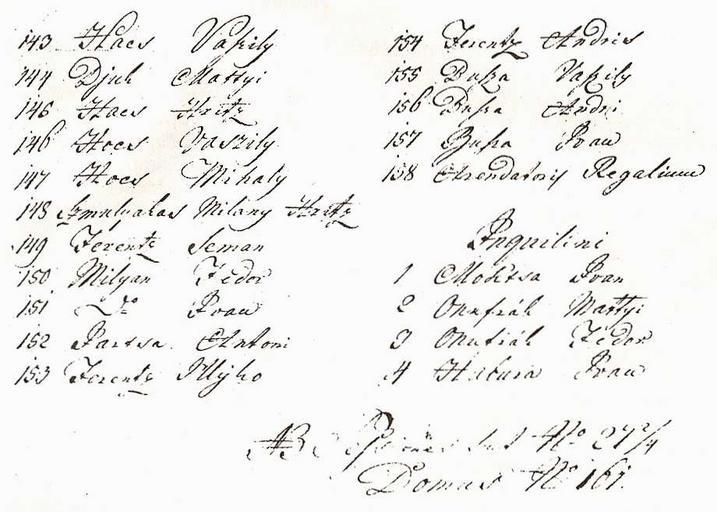 143 Hacs Vaszily
144 Djuk Mattyi
145 Hacs Hritz
146 Hocs Vaszily
147 Hocs Mihaly
148 Milány Hritz
149 Ferentz Seman
150 Milyan Fedor
151 Do Ivan
152 Antoni
153 Ferentz Illyko
154 Ferentz Andris
155 Busza Vaszily
156 Busza Andri
157 Busza Ivan
158 Arendatorii Regalium
Inquilini
1 Mokitsa Ivan
2 Onufrák Mattyi
3 Onufrák Fedor
4 Hatura Ivan
NB sunt No 27 2/4
Domus No 161.